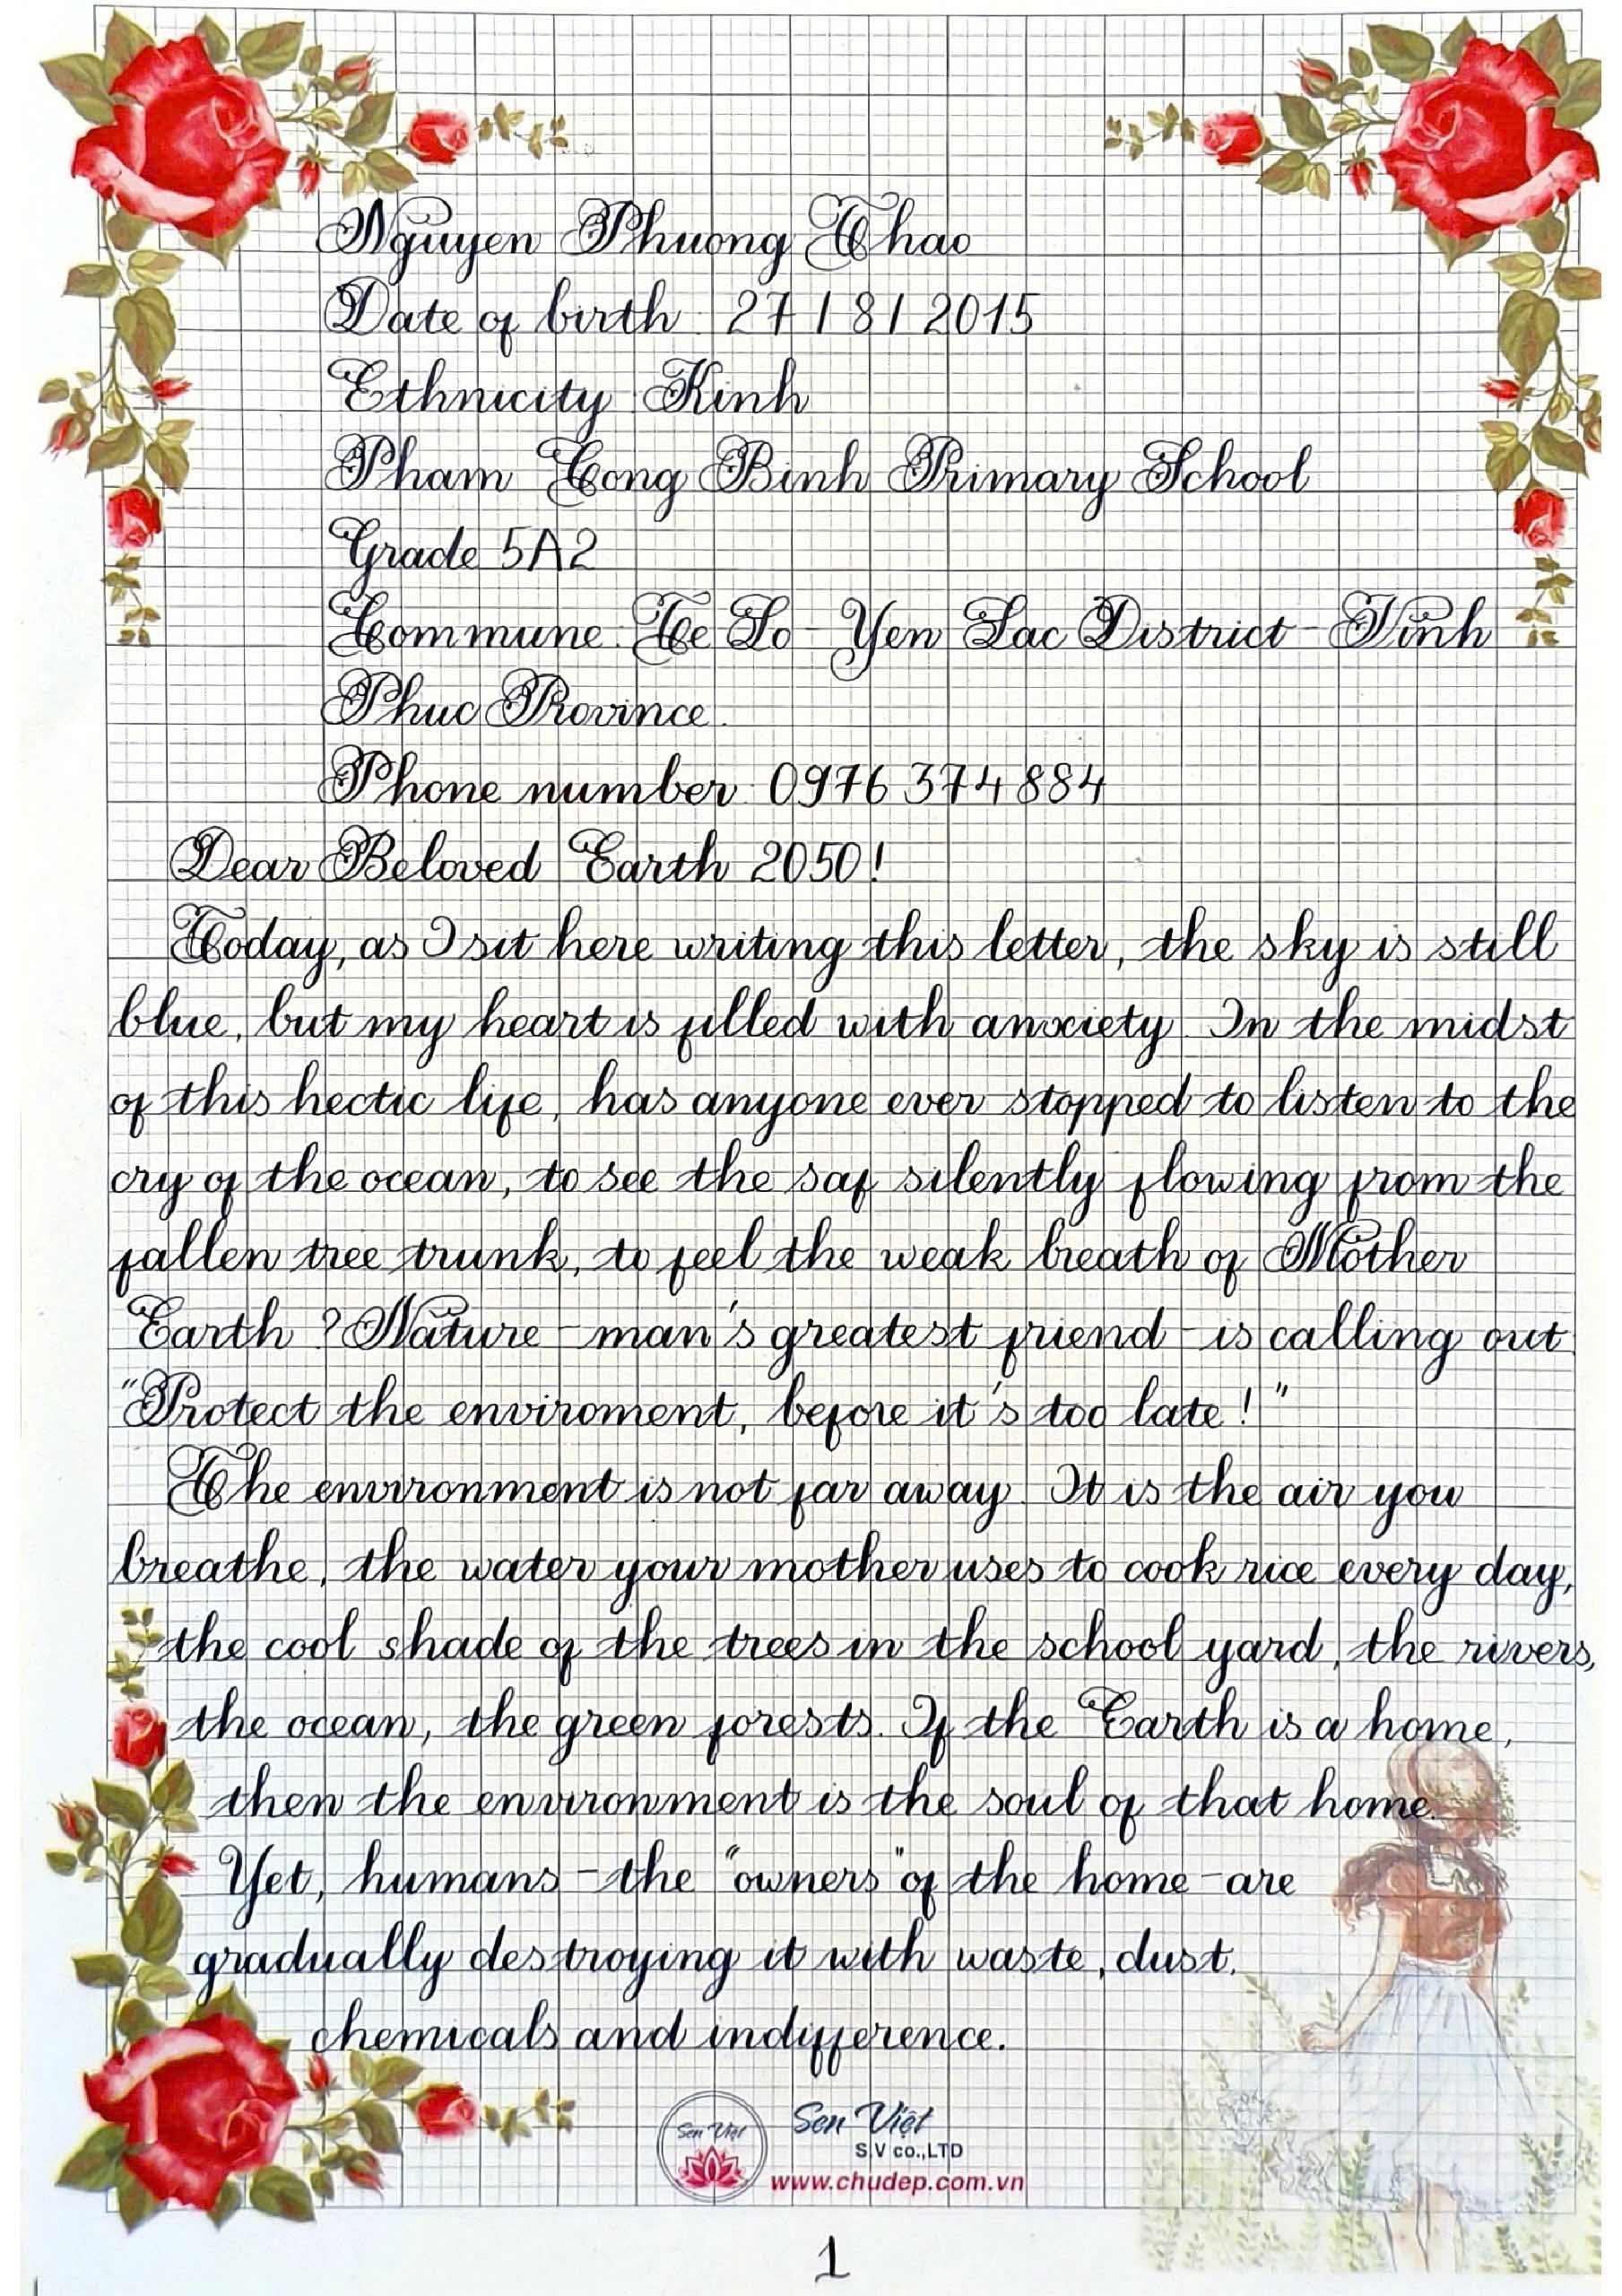 Nguyen Phuong Thao
Date of birth : 27 / 8 / 2015
Ethnicity : Kinh
Pham Cong Binh Primary School
Grade 5A2
Commune : Te Lo - Yen Lac District - Vinh
Phuc Province.
Phone number : 0976 374 884
Dear Beloved Earth 2050!
Today, as I sit here writing this letter, the sky is still
blue, but my heart is filled with anxiety. In the midst
of this hectic life, has anyone ever stopped to listen to the
cry of the ocean, to see the saf silently flowing from the
fallen tree trunk, to feel the weak breath of Mother
Earth ? Nature - man's greatest friend - is calling out
"Protect the enviroment, before it's too late! "
The environment is not far away. It is the air you
breathe, the water your mother uses to cook rice every day,
the cool shade of the trees in the school yard, the rivers,
the ocean, the green forests. If the Earth is a home,
then the environment is the soul of that home.
Yet, humans - the "owners" of the home - are
gradually destroying it with waste, dust,
chemicals and indifference.
Sen Việt
Sen Việt
S.V co.,LTD
www.chudep.com.vn
1